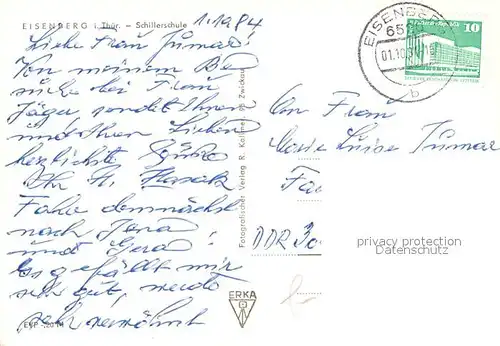 EISENBERG i. Thür. – Schillerschule
1.10.84
Liebe Frau Jumar!
Von meinem Be
suche bei Frau
Jäger sendet Ihnen
und Ihren Lieben
herzlichste Grüße
Ihr H.
Fahre demnächst
nach Jena
und Gera!
Es gefällt mir
sehr gut, werde
sehr verwöhnt
EVP -,20 M
Fotografischer Verlag R. Kallmer, 95 Zwickau
ERKA
EISENBERG
65
01.10.
b
10
An Frau
Marie Luise Jumar
DDR 30
privacy protection
Datenschutz